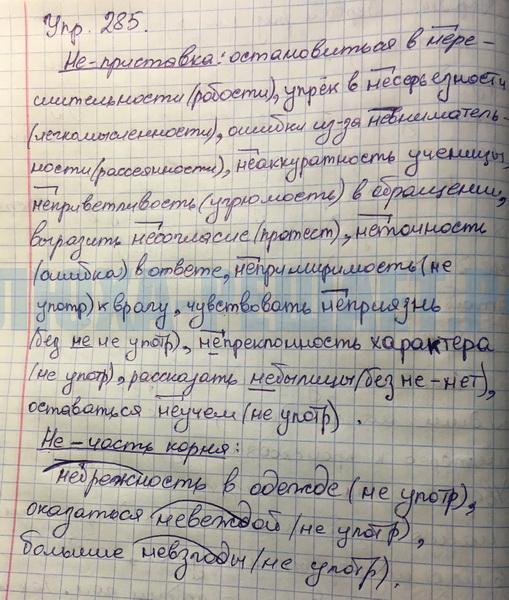 Упр. 285.
Не-приставка: остановиться в нере-
шительности (робости), упрёк в несерьезности
(легкомысленности), ошибки из-за невниматель-
ности (рассеянности), неаккуратность ученицы,
неприветливость (угрюмость) в обращении,
выразить несогласие (протест), неточность
(ошибка) в ответе, непримиримость (не
употр) к врагу, чувствовать неприязнь
(без не не употр), непреклонность характера
(не употр), рассказать небылицы (без не-нет),
оставаться неучем (не употр) .
Не-часть корня:
небрежность в одежде (не употр),
оказаться невеждой (не употр),
большие невзгоды (не употр).